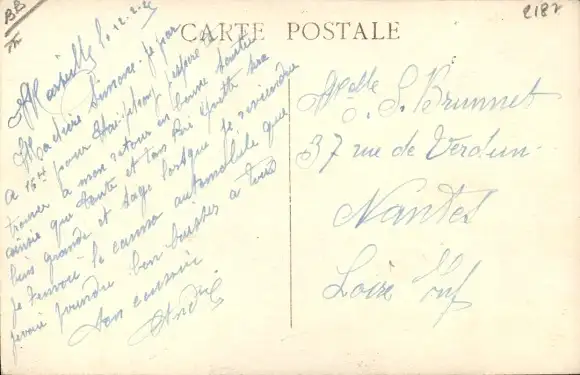 BB
2187
CARTE POSTALE
Marseille le 12.2.2
Ma chère Simone. Je par
a 16H pour Haiphong j'espère te
trouver à mon retour en bonne santée
ainsi que tante et ton qui sera
bien grande et sage lorsque je reviendrai
Je t'envoi le canno automobile que
joindre bon baisser a tous
ton cousin
André
Mlle S. Brunnet
37 rue de Verdun
Nantes
Loire Inf